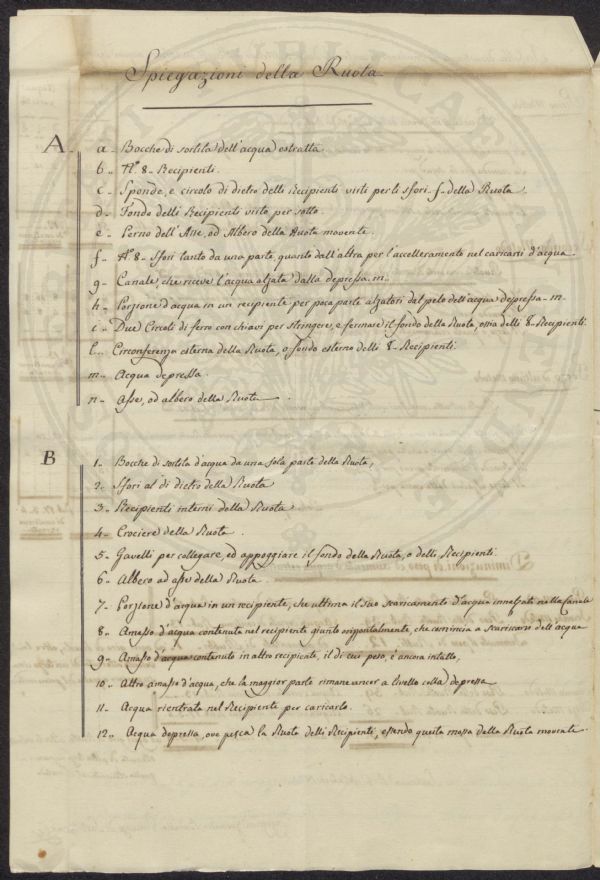 Spiegazioni della Ruota
A
a - Bocche di sortita dell'acqua estratta.
b - N.º 8 - Recipienti.
c - Sponde, e circolo di dietro delli Recipienti visti per li sfori - f - della Ruota.
d - Fondo delli Recipienti visto per sotto.
e - Perno dell'Asse, od Albero della Ruota movente.
f - N.º 8 - Sfori tanto da una parte, quanto dall'altra per l'accelleramento nel caricarsi d'acqua
g - Canale, che riceve l'acqua alzata dalla depressa - m -
h - Porzione d'acqua in un recipiente per poca parte alzatasi dal pelo dell'acqua depressa - m -
i - Due Circoli di ferro con chiavi per stringere, e fermare il fondo della Ruota, ossia delli 8 - Recipienti
l - Circonferenza esterna della Ruota, o fondo esterno delli 8 - Recipienti
m - Acqua depressa.
n - Asse, od albero della Ruota.
B
1 - Bocche di sortita d'acqua da una sola parte della Ruota,
2 - Sfori al di dietro della Ruota
3 - Recipienti interni della Ruota
4 - Crociere della Ruota.
5 - Gavelli per collegare, ed appoggiare il fondo della Ruota, o delli Recipienti
6 - Albero ad asse della Ruota.
7 - Porzione d'acqua in un recipiente, che ultima il suo scaricamento d'acqua innalzata nella Canale
8 - Amasso d'acqua contenuta nel recipiente giunto orizontalmente, che comincia a scaricarsi dell'acqua
9 - Amasso d'acqua contenuto in altro recipiente, il di cui peso, è ancora intatto,
10 - Altro amasso d'acqua, che la maggior parte rimane ancor a livello colla depressa
11 - Acqua rientrata nel Recipiente per caricarlo.
12 - Acqua depressa, ove pesca la Ruota delli Recipienti, essendo questa mossa della Ruota movente.